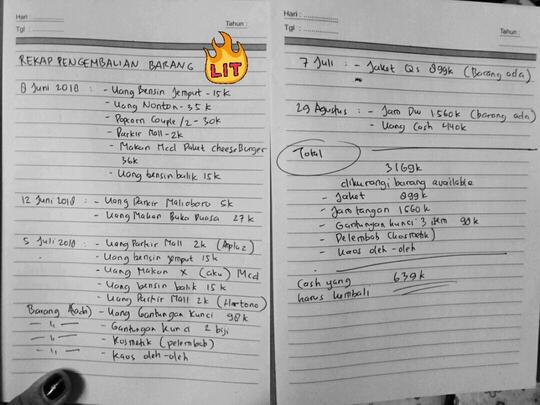 Hari :
Tgl : Tahun :
REKAP PENGEMBALIAN BARANG
LIT
8 Juni 2018 : - Uang Bensin Jemput - 15k
- Uang Nonton - 35k
- Popcorn Couple /2 - 30k
- Parkir Mall - 2k
- Makan Mcd Paket cheese Burger
36k
- Uang bensin balik 15k
12 Juni 2018 : - Uang Parkir Malioboro 5k
- Uang Makan Buka Puasa 27k
5 Juli 2018 : - Uang Parkir Mall 2k (Amplaz)
- Uang bensin jemput 15k
- Uang Makan X (aku) Mcd
- Uang bensin balik 15k
- Uang Parkir Mall 2k (Hartono)
Barang (kado) - Uang Gantungan Kunci 98k
— 4 — - Gantungan Kunci 2 biji
— 4 — - Kosmetik (pelembab)
— 4 — - Kaos oleh-oleh
Hari :
Tgl : Tahun :
7 Juli : - Jaket Qs 899k (Barang ada)
29 Agustus : - Jam DW 1560k (barang ada)
- Uang Cash 440k
Total
3169k
dikurangi barang available
- Jaket 899k
- Jam tangan 1560k
- Gantungan kunci 3 item 98k
- Pelembab (kosmetik)
- Kaos oleh-oleh
Cash yang 639k
harus kembali